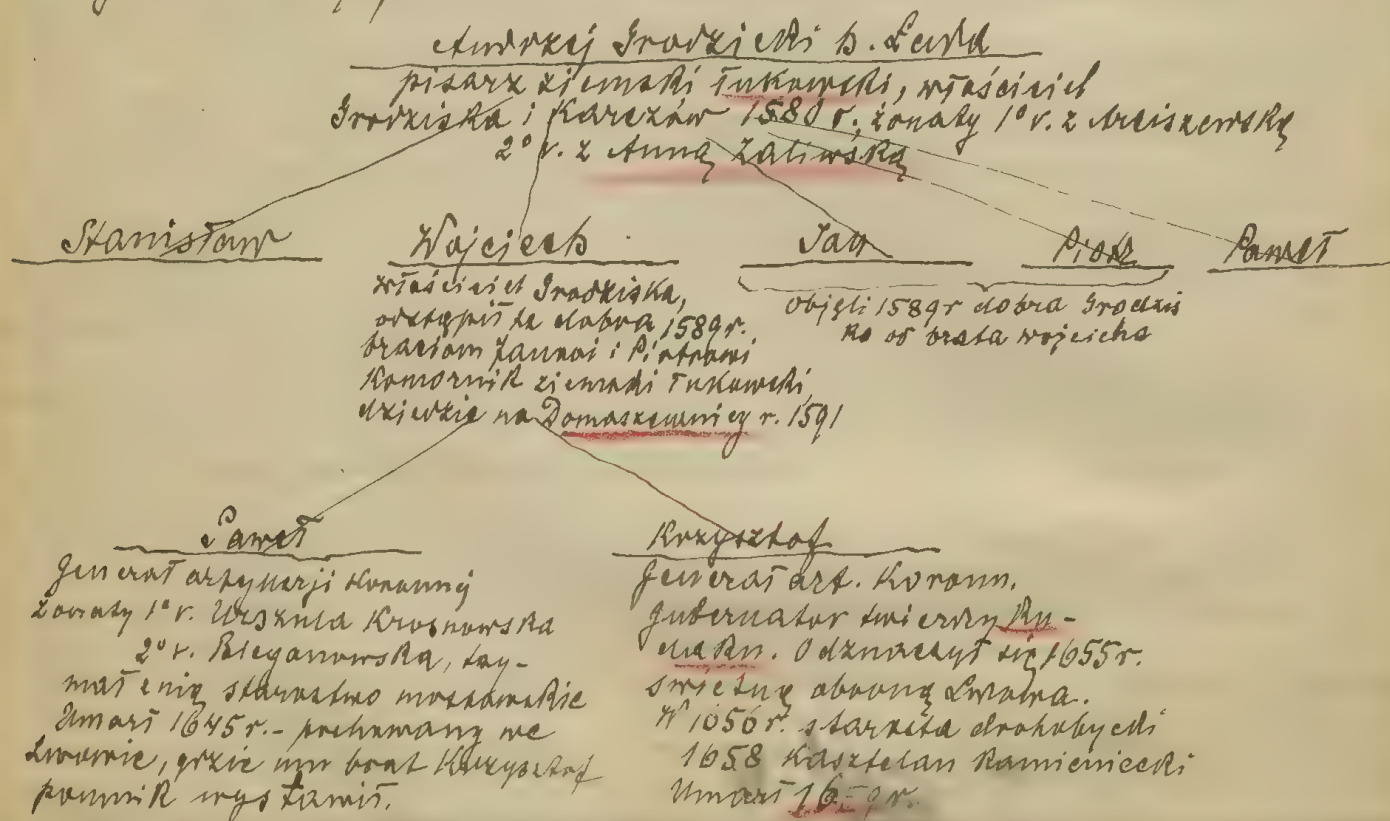 Andrzej Grodzicki h. Łada
pisarz ziemski łukowski, właściciel
Grodziska i Karczów 1580 r., żonaty 1° v. z Arciszewską
2° v. z Anną Zaliwską
Stanisław
Wojciech
Jan
Piotr
Paweł
właściciel Grodziska,
odstąpił te dobra 1589 r.
braciom Janowi i Piotrowi
Komornik ziemski łukowski,
dziedzic na Domaszewnicy r. 1591
objęli 1589 r dobra Grodzis
ko od brata Wojciecha
Paweł
Generał artylerji koronnej
żonaty 1° v. Urszula Krosnowska
2° v. Kleganowska, 
mał z nią starostwo
Umarł 1645 r. - pochowany we
Lwowie, gdzie mu brat Krzysztof
pomnik wystawił.
Krzysztof
Generał art. Koronn.
gubernator twierdzy Ku-
daku. Odznaczył się 1655 r.
świetną obroną Lwowa.
W 1656 r. starosta drohobycki
1658 Kasztelan Kamieniecki
Umarł